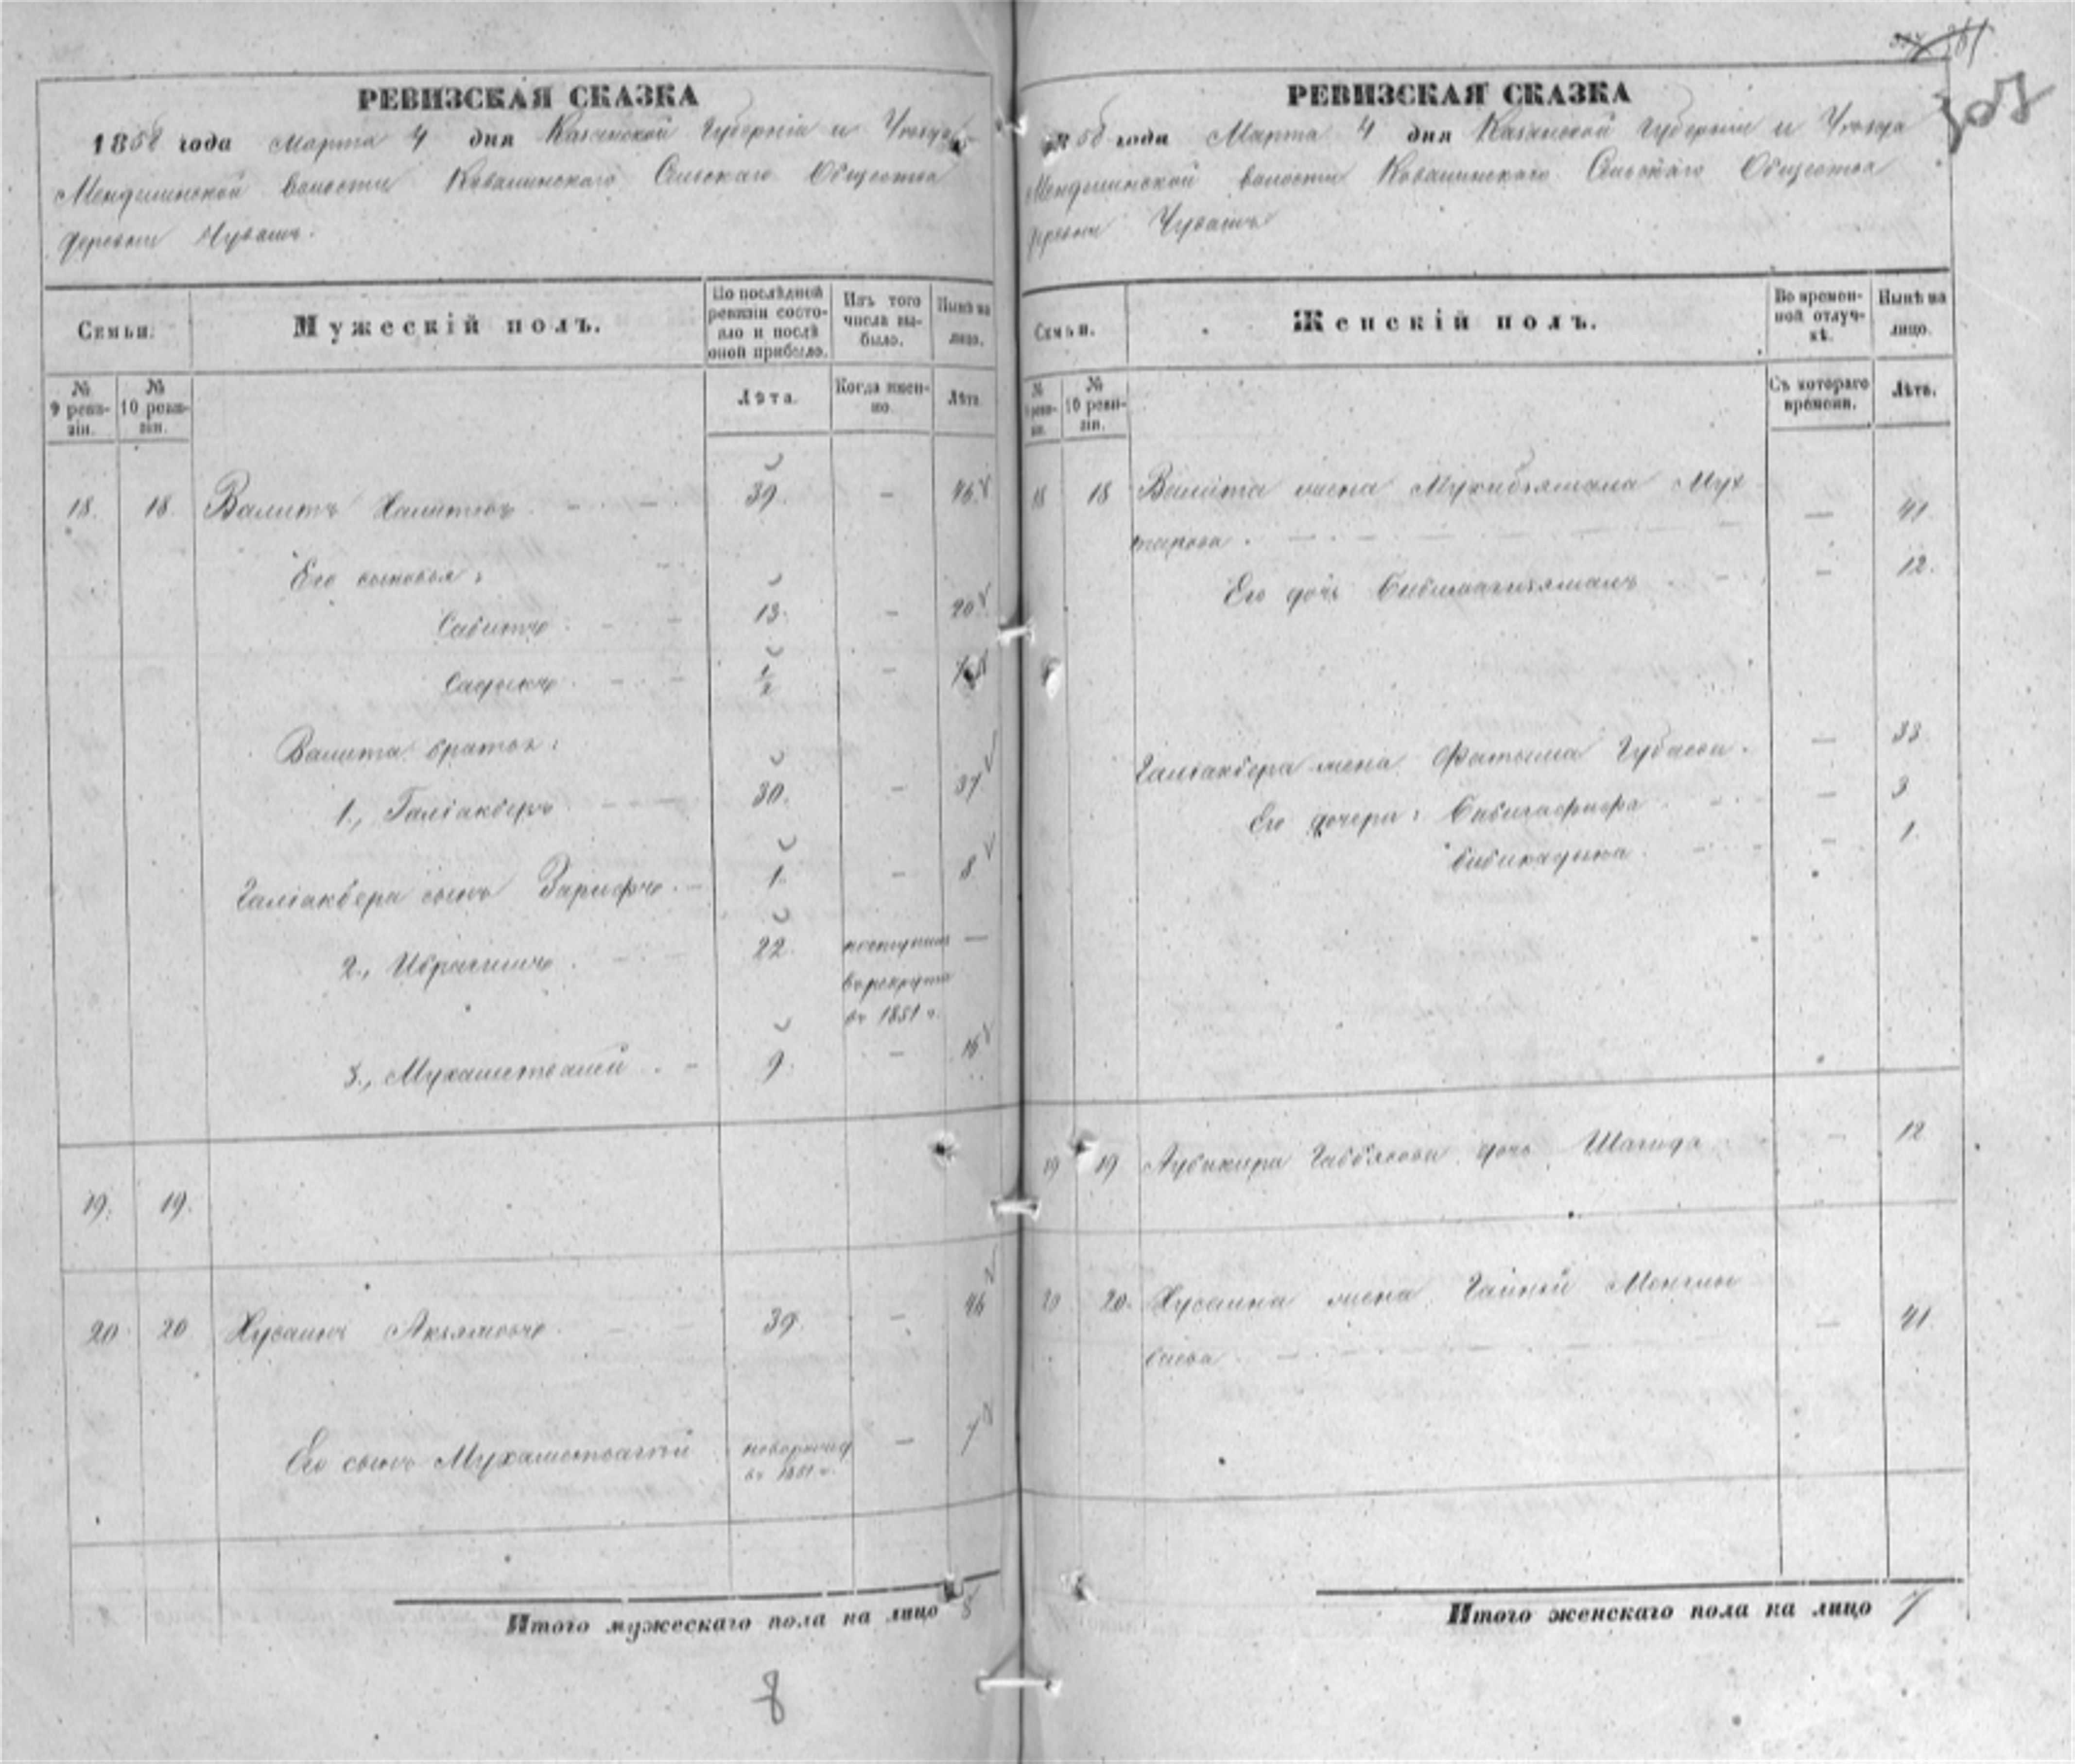 РЕВИЗСКАЯ СКАЗКА
1858 года Марта 4 дня Казанской Губерніи и Уезда
Менделинской волости Ковалинскаго Сельскаго Общества
деревни Чувашъ.
Семьи.
Мужескій полъ.
По послѣдней ревизіи состояло и послѣ оной прибыло.
Изъ того числа выбыло.
Нынѣ на лицо.
№ 9 ревизіи.
№ 10 ревизіи.
Лѣта.
Когда именно.
Лѣта.
18. 18. Валитъ Халитовъ 39. — 46
Его сыновья:
Сабитъ 13. — 20
Садыкъ 1/2 —
Валита братья:
1., Галіакберъ 30. — 37
Галіакбера сынъ Зарифъ 1. — 8
2., Ибрагимъ 22. поступилъ —
в рекруты
въ 1851 г.
3., Мухаметвалей 9. — 16
19. 19.
20 20 Хусаинъ Акзямовъ 39. — 46
Его сынъ Мухаметвагый новорожд — 7
въ 1851 г.
Итого мужескаго пола на лицо 8
8
305
РЕВИЗСКАЯ СКАЗКА
1858 года Марта 4 дня Казанской Губерніи и Уезда
Менделинской волости Ковалинскаго Сельскаго Общества
деревни Чувашъ
Семьи.
Женскій полъ.
Во временной отлучкѣ.
Нынѣ на лицо.
№ 9 ревизіи.
№ 10 ревизіи.
Съ котораго времени.
Лѣта.
18 18 Валита жена Мухибзямала Мух
тарова. — 41
Его дочь — 12.
Галіакбера жена Фатыма Губаева. — 33.
Его дочери: Бибигафифа — 3
Бибикадыма — 1.
19 19 Аубакира Габбясова дочь Шагида — 12
20 20. Хусаина жена Гайней Менгли
баева — 41.
Итого женскаго пола на лицо 7